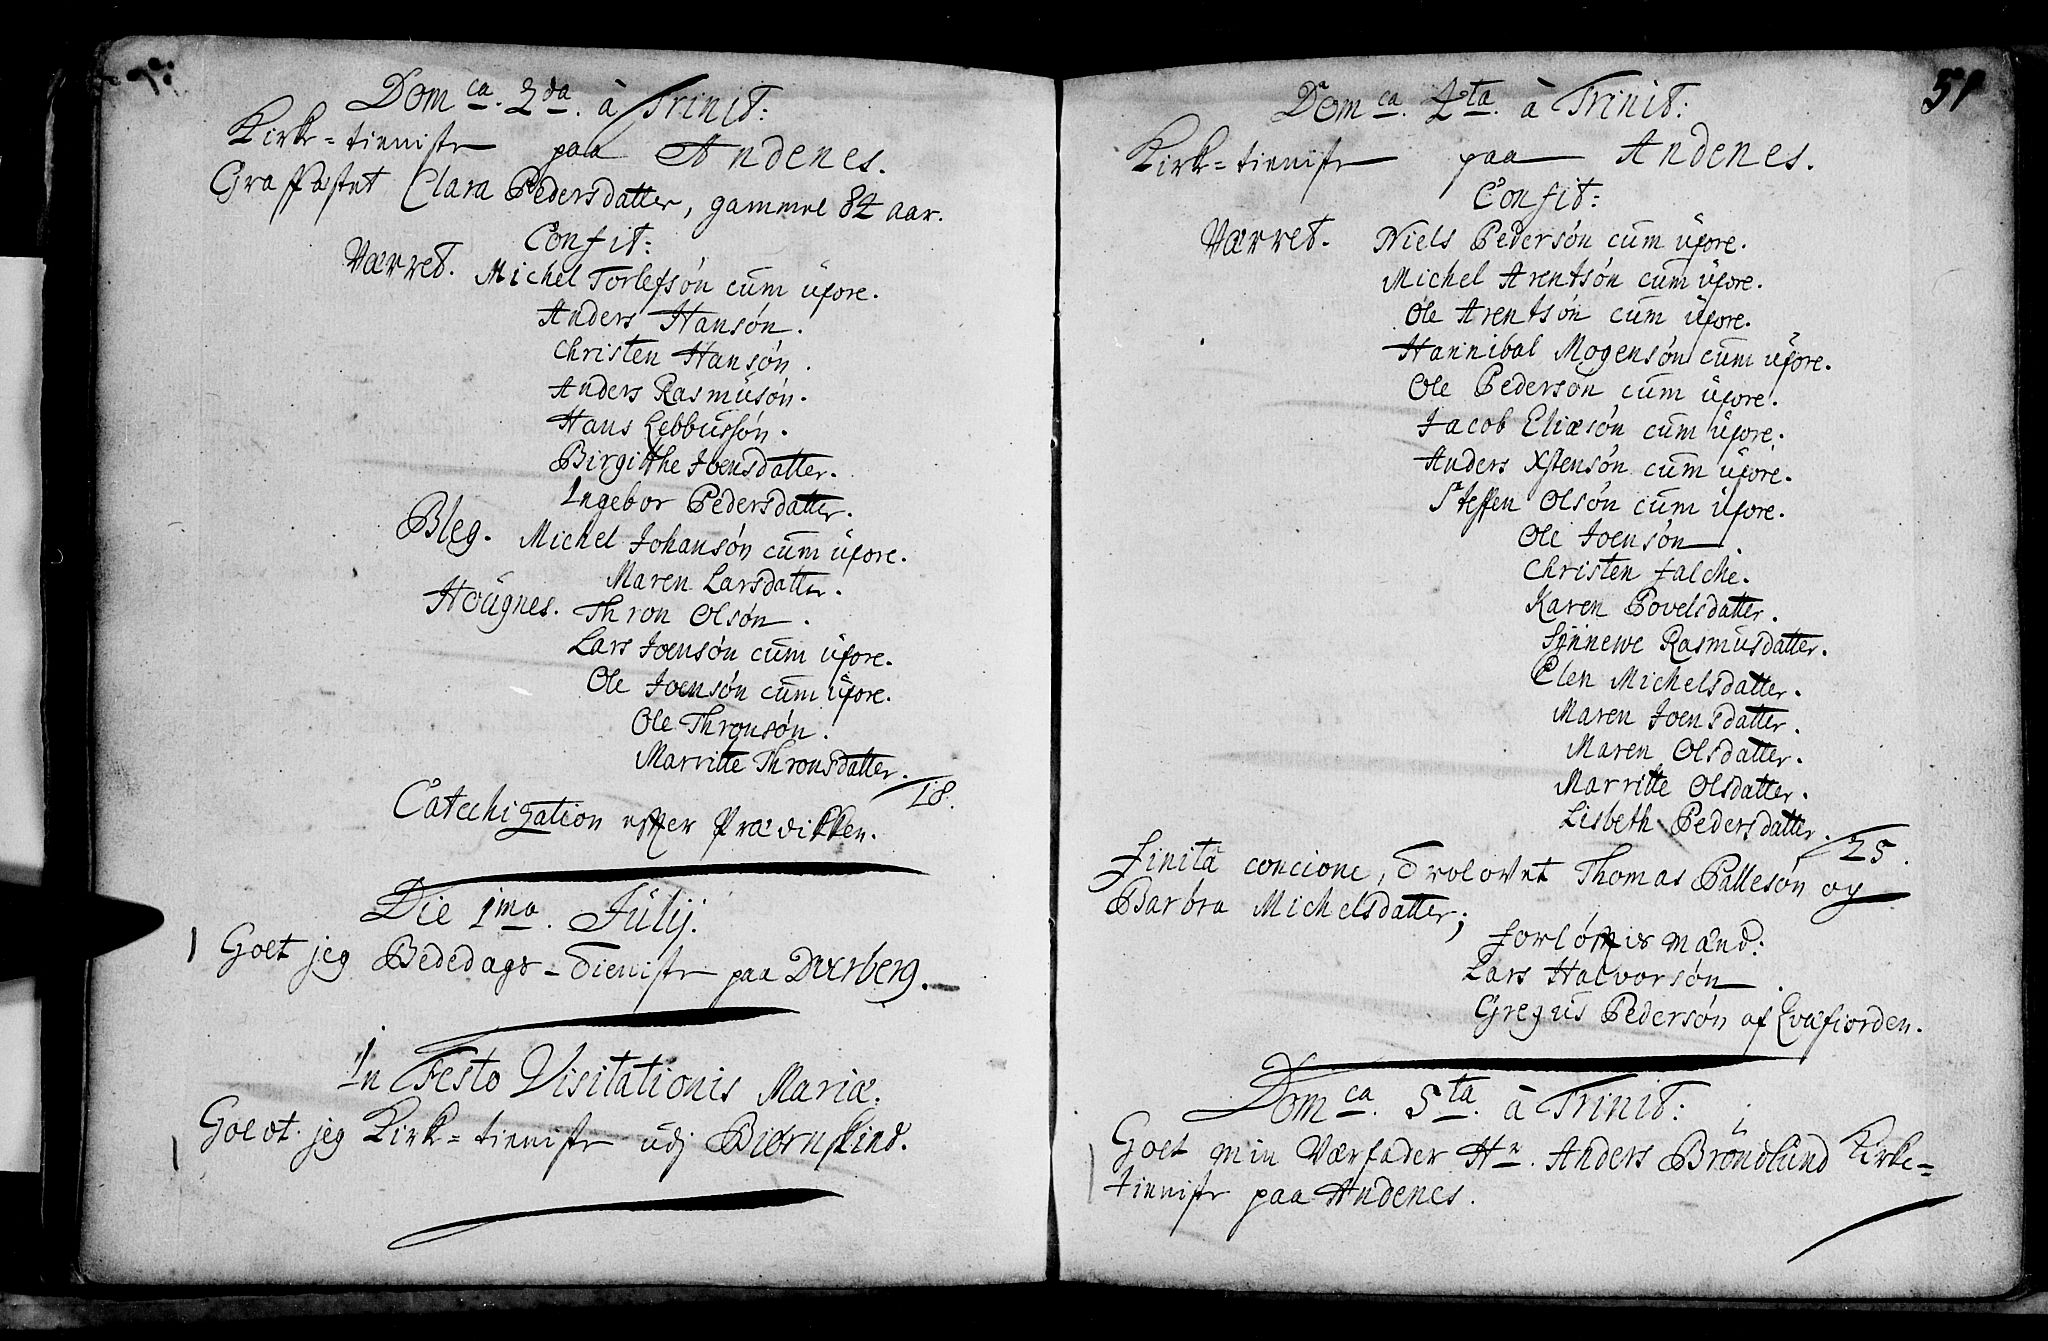 Dom ca. 2da. à Trinit:
Kirke=tieniste paa Andenes.
Graffæstet Clara Pedersdatter, gammel 82 aar.
Confit:
Værret. Michel Torlefsón cum üxore.
Anders Hansón.
Christen Hansón.
Anders Rasmüsón.
Hans Lebbussón.
Birgitthe Joensdatter.
Ingebor Pedersdatter.
Bleg. Michel Johansón cum üxore.
Maren Larsdatter.
Höügnes. Thron Olsón.
Lars Joensón cum üxore.
Ole Joensón cum üxore.
Ole Thronsón.
Marritte Thronsdatter.
18.
Catechization efter Prædikken.
Die 1ma. Jülij.
Goet jeg Bededags-Tieniste paa Dverberg.
In Festo Visitationis Mariæ.
Goedt jeg Kirke=tieniste udj Biörnskind.
51
Dom ca. 4ta. à Trinit:
Kirke=tieniste paa Andenes.
Confit:
Værret. Niels Pedersón cum üxore.
Michel Arentsón cum üxore.
Ole Arentsón cum üxore.
Hannibal Mogensón cum üxore.
Ole Pedersón cum üxore.
Jacob Eliæsón cum üxore.
Anders Xstensón cum üxore.
Steffen Olsón cum üxore.
Ole Joensón.
Christen Falche.
Karen Povelsdatter.
Sinnewe Rasmusdatter.
Elen Michelsdatter.
Maren Joensdatter.
Maren Olsdatter.
Marritte Olsdatter.
Lisbeth Pedersdatter.
25.
Finita concione, Trolovet Thomas Pallesón og
Barbra Michelsdatter;
Forlófvismænd:
Lars Halvorsón.
Gregus Pedersón af Qvæfiorden.
Dom ca. 5ta. à Trinit:
Goet min Værfader Hr. Anders Bröndlünd Kirke=
tieniste paa Andenes.